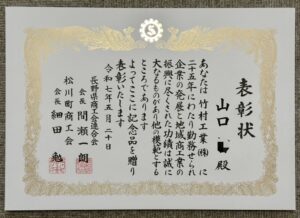 表彰状
山口 殿
あなたは 竹村工業㈱ に
二十五年にわたり勤務せられ
企業の発展と地域商工業の
振興に尽くされた功績は誠に
大なるものがあり他の模範とする
ところであります
よってここに記念品を贈り
表彰いたします
令和七年五月二十日
長野県商工会連合会
会長 関瀬一朗
松川町商工会
会長 細田